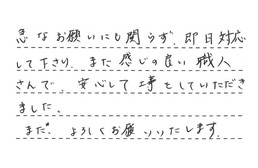 急なお願いにも関らず、即日対応
して下さり、また感じの良い職人
さんで、安心して工事をしていただき
ました。
また、よろしくお願いいたします。